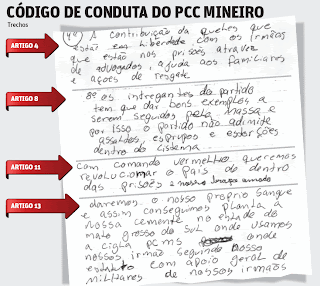 CÓDIGO DE CONDUTA DO PCC MINEIRO
Trechos
ARTIGO 4
4º) A contribuição da queles que
estão em Liberdade com os irmãos
que estão nos prisões atravez
de advogados, ajuda aos familiares
e ações de resgate.
ARTIGO 8
8º os intregantes do partido
tem que dar bons exemplos a
serem seguidos pela massa e
por isso o partido não adimite
assaltos, estupros e estorsões
dentro do sistema.
ARTIGO 11
Com comando vermelho queremos
revolucionar o país de dentro
das prisões e nosso braço armado
ARTIGO 13
daremos o nosso proprio sangue
e assim conseguimos planta a
nossa cemente no estado de
mato grosso do sul onde usamos
a cigla pcms onde
nossos irmão segundo nosso
estatuto com apoio geral de
milhares de nossos irmãos